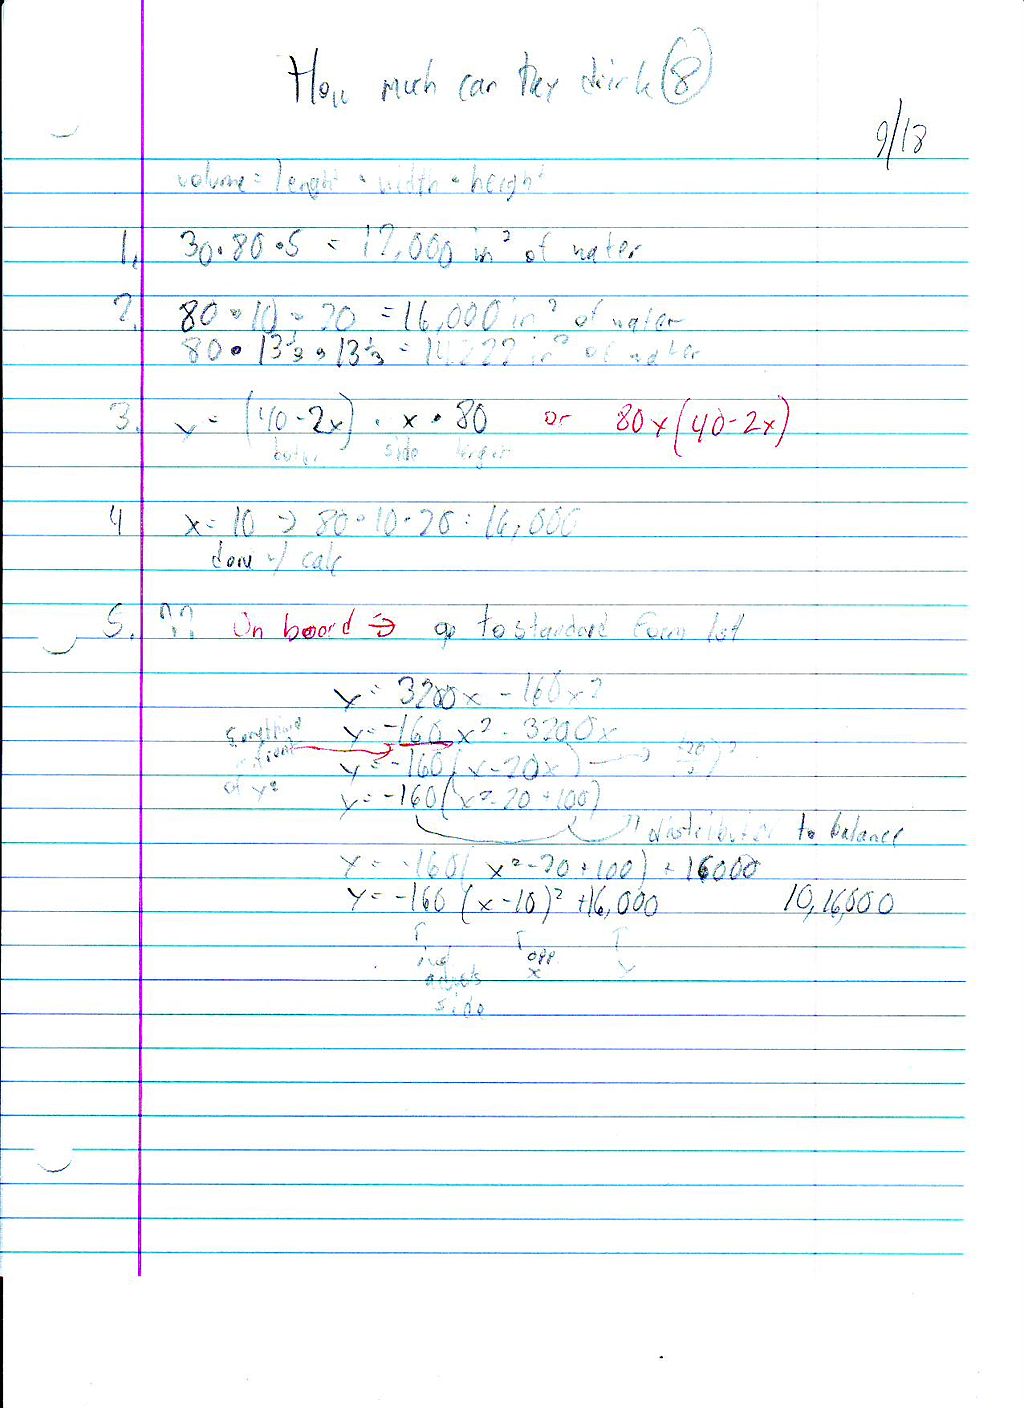 How much can they drink (8)
9/18
volume = lenght • width • height
1. 30•80•5 = 12,000 in³ of water
2. 80•10•20 = 16,000 in³ of water
80•13⅓•13⅓ = 14222 in³ of water
3. y = (40-2x) • x • 80 or 80x(40-2x)
side
4 x=10 → 80•10•20 = 16,000
done w/ calc
5. ?? On board ⇒ go to standard form 1st
y = 3200x - 160x²
y = -160x² - 3200x
y = -160(x-20x)
front of x²
y = -160(x²-20+100)
distributes to balance
y = -160(x²-20+100) + 16000
y = -160(x-10)² +16,000 10,16,000
↑ ↑ opp x ↑ y
side